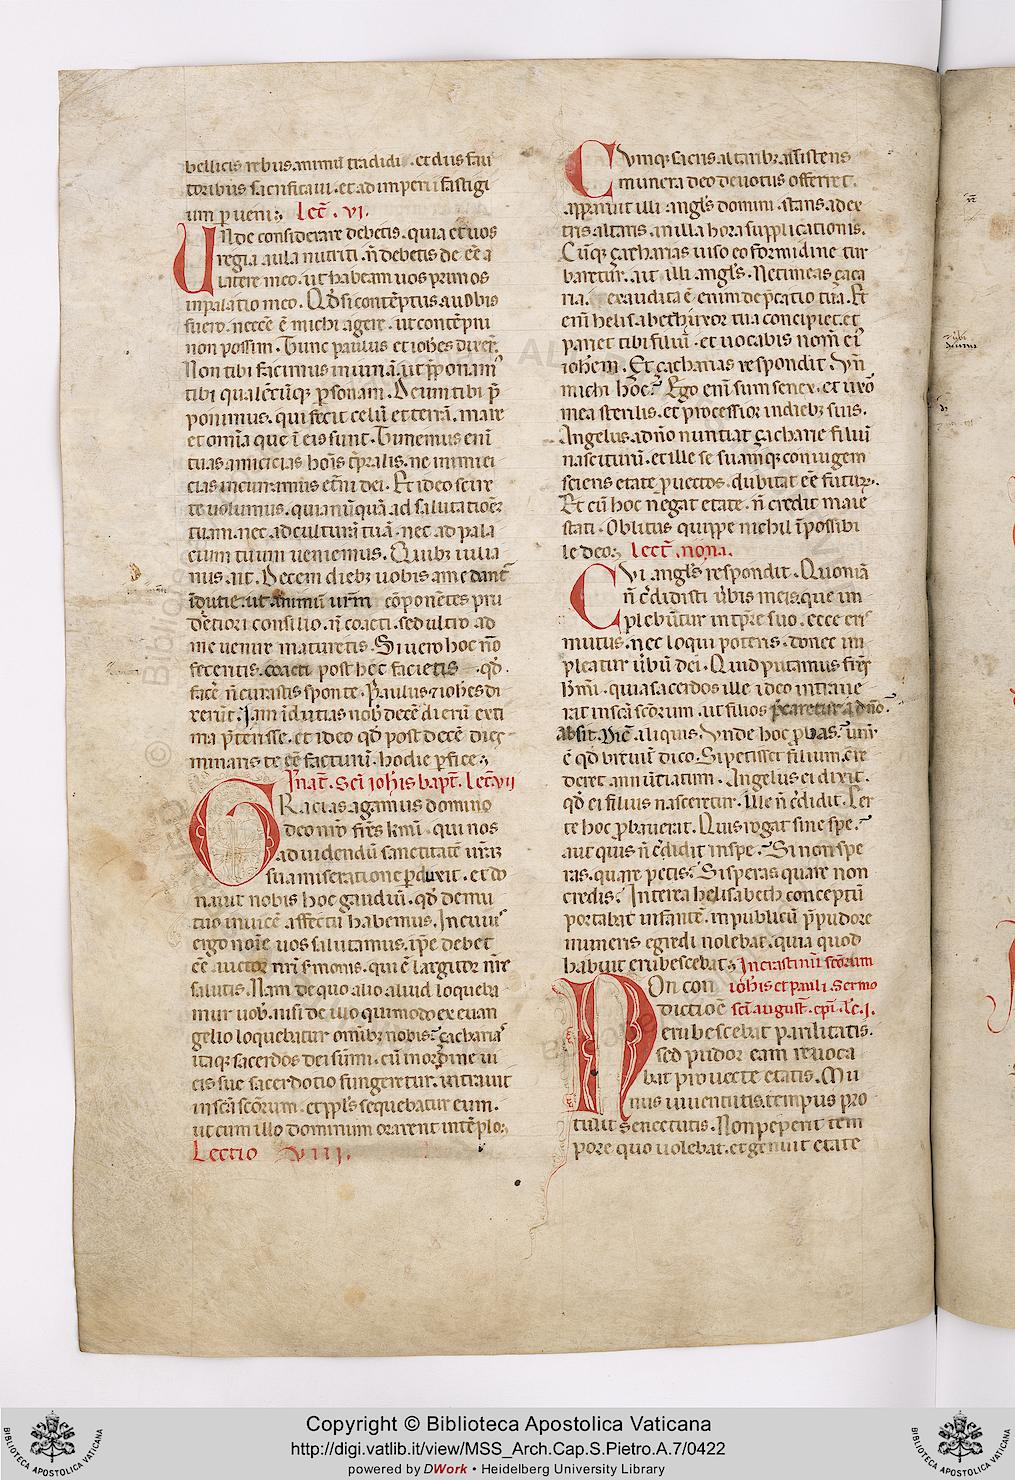 bellicis rebus animū tradidi. et diis fau
toribus sacrificaui. et ad imperii fastigi
um ꝑueni. Lect̄. vi.
Unde considerare debetis. quia et uos
regia aula nutriti. n̄ debetis deēē a
latere meo. ut habeam uos primos
in palatio meo. Qđ si contēptus a uobis
fuero. necēē ē michi agere. ut contēpni
non possim. Tunc paulus et ioħes dixer̄.
Non tibi facimus iniuriā. ut p̄ponam᷒
tibi qualēcūq; ꝑsonam. Deum tibi p̄
ponimus. qui fecit celū et terrā. mare
et omīa que ī eis sunt. Timemus enī
tuas amicicias hoīs tp̄ralis. ne inimici
cias incurramus et̄ni dei. Et ideo scire
te uolumus. quia nūquā ad salutationē
tuam. nec ad culturā tuā. nec ad pala
cium tuum ueniemus. Quibꝫ iulia
nus ait. Decem diebꝫ uobis ame dant᷒
īdutie. ut animū ur̄m cōponētes pru
dētiori consilio. n̄ coacti. sed ultro ad
me uenire maturetis. Si uero hoc nō
feceritis. coacti post hec facietis. qđ
facē n̄ curastis sponte. Paulus ⁊ ioħes di
xerūt. Iam īdutias nob᷒ decē dierū exti
ma p̄terisse. et ideo qđ post decē dies
minaris te ēē facturū. hodie ꝑfice.
Ī nat̄. Sc̄i ioħis bapt̄. Lect̄. vii
Gracias agamus domino
deo nr̄o fr̄es kmī. qui nos
ad uidendū sanctitatē ur̄aꝫ
sua miseratione ꝑduxit. et do
nauit nobis hoc gaudiū. qđ de mu
tuo inuicē affectu habemus. In cuiꝰ
ergo noīe uos salutamus. ip̄e debet
ēē auctor nr̄i s̄monis. qui ē largitor nr̄e
salutis. Nam de quo alio aliud loqueba
mur uob᷒. nisi de illo quimodo ex euan
gelio loquebatur omībꝫ nobis. Çacharias
itaq; sacerdos dei sūmi. cū in ordine ui
cis sue sacerdotio fungeretur. intrauit
in sc̄a sc̄orum. et ppl̄s sequebatur eum.
ut cum illo dominum orarent in tēplo.
Lectio VIII.
Cumq; sacris altaribꝫ assistens
munera deo deuotus offerret.
apparuit illi angl̄s domini. stans ad ex
tris altaris. in illa hora supplicationis.
Cūq; çacharias uiso eo formidine tur
baretur. ait illi angl̄s. Ne timeas çaca
ria. exaudita ē enim dep̄catio tua. Et
enī helisabeth uxor tua concipiet. et
pariet tibi filiū. et uocabis nom̄ eiꝰ
ioħem. Et çacharias respondit. Vn̄
michi hoc? Ego enī sum senex. et uxō
mea sterilis. et processior in diebꝫ suis.
Angelus a dn̄o nuntiat çacharie filiū
nasciturū. et ille se suamq; coniugem
sciens etate ꝓuectos. dubitat ēē futur̄.
Et cū hoc n̄egat etate. n̄ credit maie
stati. Oblitus quippe nichil īpossibi
le deo. Lect̄. nona.
Cui angl̄s respondit. Quoniā
n̄ c̄didisti u̓bis meis. que im
plebūtur in tp̄re suo. ecce eris
mutus. nec loqui poteris. donec im
pleatur u̓bū dei. Quid putamus fr̄es
kmī. quia sacerdos ille ideo intraue
rat in sc̄a sc̄orum. ut filios p̄caretur a dn̄o.
absit. Dic̄ aliquis. Vnde hoc ꝓbas? unū
ē qđ breuiū dico. Si petisset filium. c̄re
deret annūtiatum. Angelus ei dixit.
qđ ei filius nasceretur. Ille n̄ c̄didit. Cer
te hoc ꝓbauerat. Quis rogat sine spe?
aut quis n̄ c̄didit in spe? Si non spe
ras. quare petis? Si speras quare non
credis? Interea helisabeth conceptū
portabat infantē. in publicū p̄ pudore
muneris egredi nolebat. quia quod
habuit erubescebat. In crastinū sc̄orum
Non con ioħis et pauli. Sermo
dictioē sc̄i august. epī. Lc̄. I.
erubescebat ꝑarilitatis.
sed pudor eam reuoca
bat prouecte etatis. Mu
nus iuuentutis. tempus pro
tulit senectutis. Non peperit tem
pore quo uolebat. et genuit etate
Copyright © Biblioteca Apostolica Vaticana
http://digi.vatlib.it/view/MSS_Arch.Cap.S.Pietro.A.7/0422
powered by DWork • Heidelberg University Library
BIBLIOTECA APOSTOLICA VATICANA
BIBLIOTECA APOSTOLICA VATICANA